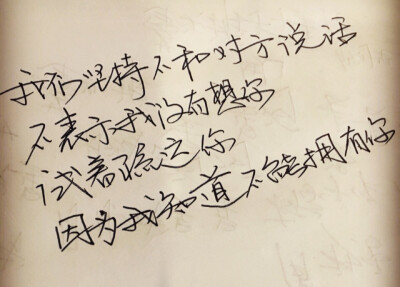 我们坚持不和对方说话
不表示我没有想你
试着躲这你
因为我知道不能拥有你